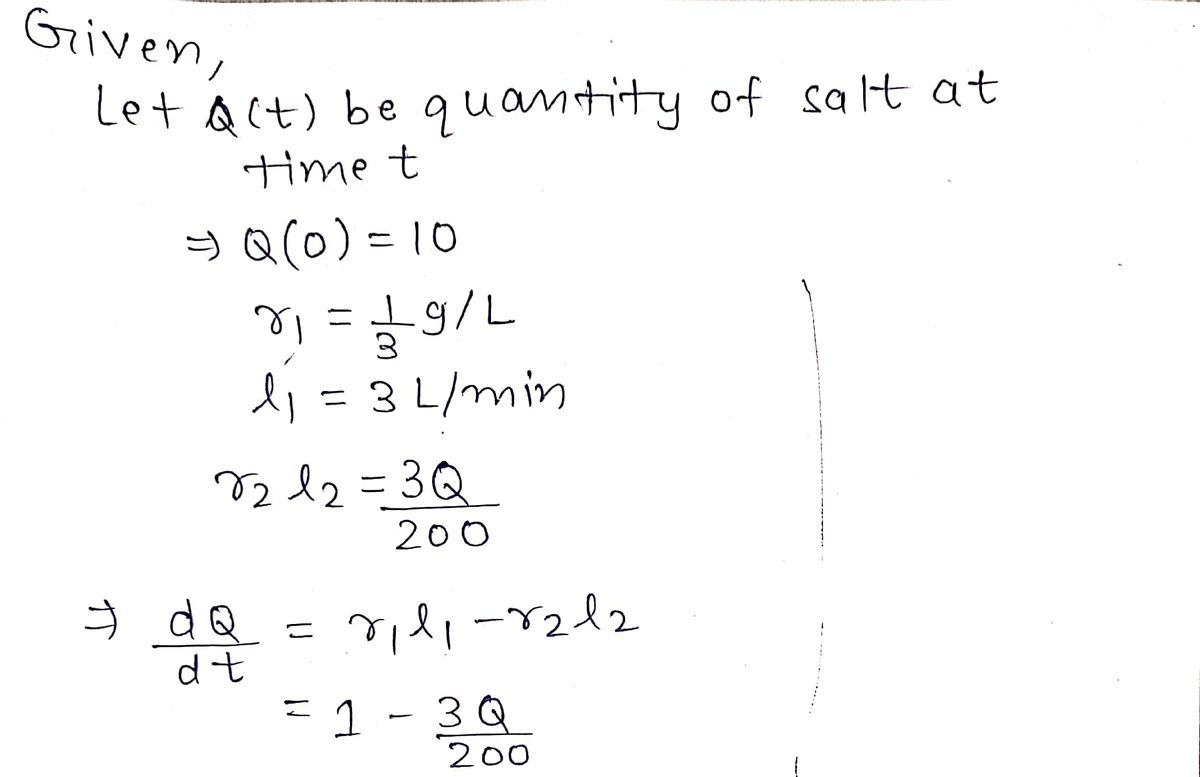 Given,
Let Q(t) be quantity of salt at
time t
⇒ Q(0) = 10
r₁ = 1/3 g/L
l₁ = 3 L/min
r₂ l₂ = 3Q/200
⇒ dQ/dt = r₁l₁ - r₂l₂
= 1 - 3Q/200